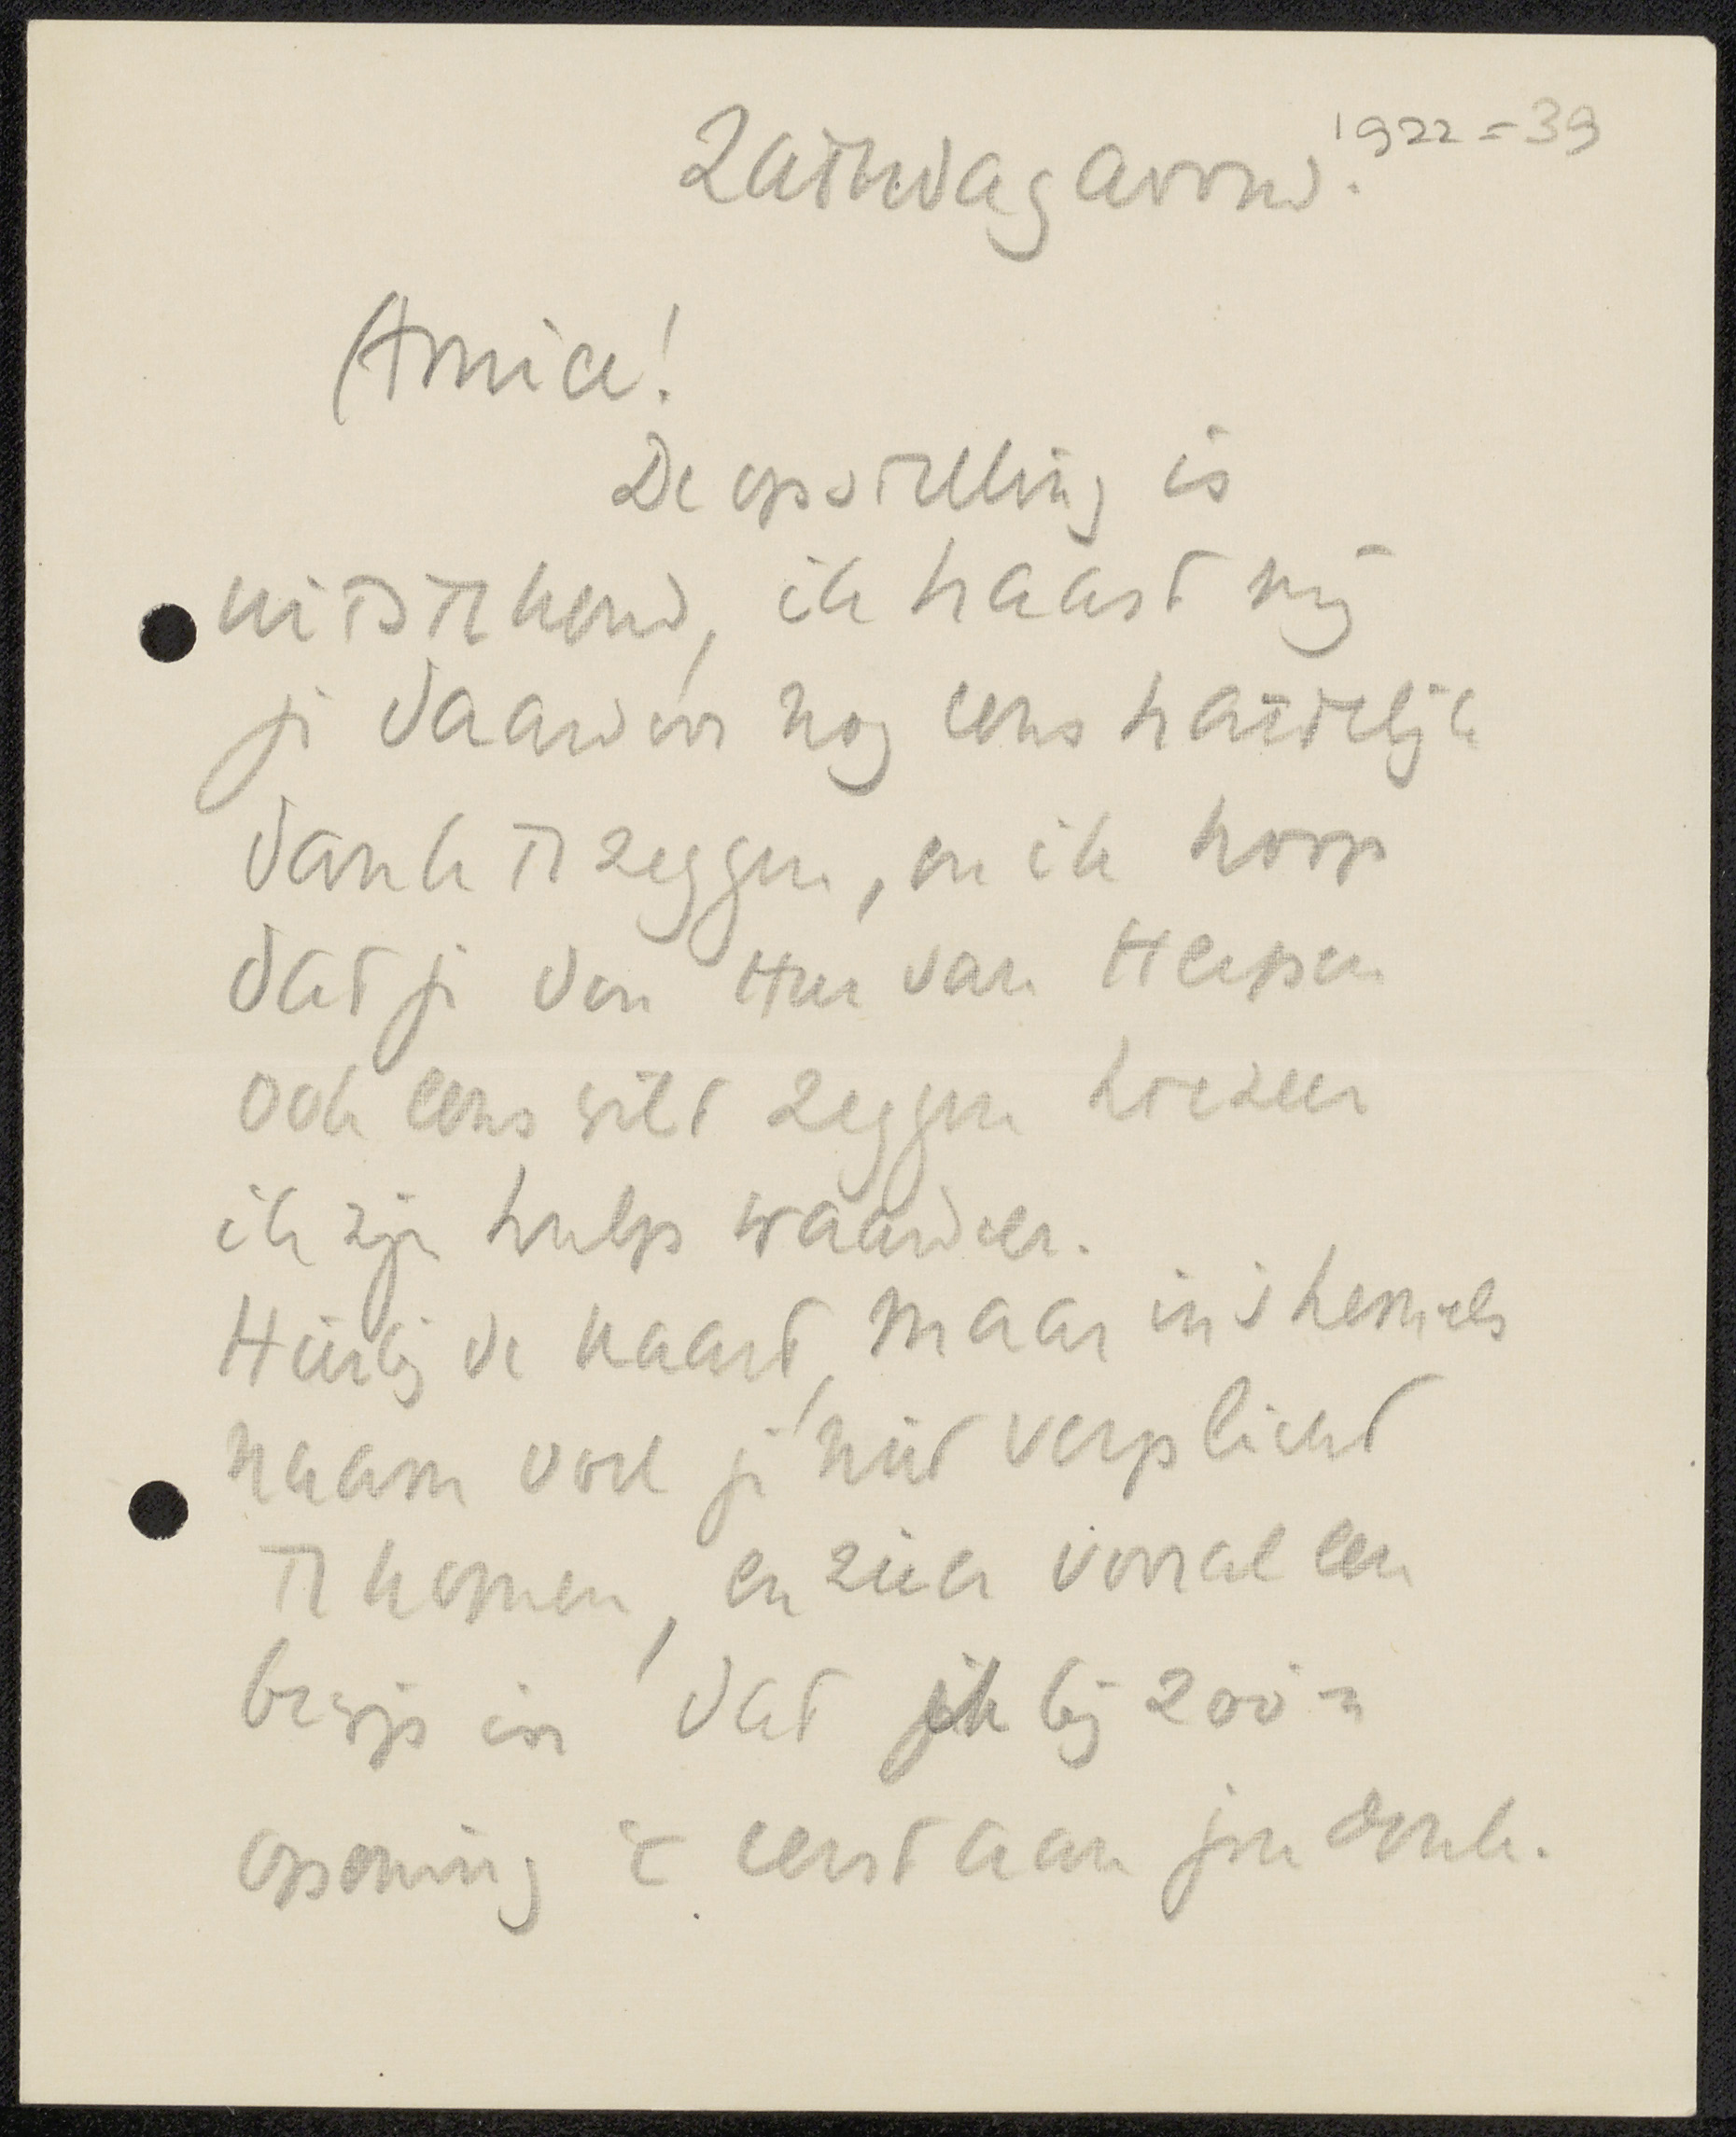 1922 = 39
Zaterdag avond.
Amice!
De opstelling is
uitstekend, ik haast mij
je daarvoor nog eens hartelijk
dank te zeggen, en ik hoop
dat je den Heer van Herpen
ook eens wilt zeggen hoezeer
ik zijn hulp waardeer.
Hierbij de kaart, maar in 's hemels
naam voel je niet verplicht
te komen, en zie er vooral een
bewijs in dat ik bij zoo'n
opening 't eerst aan jou denk.